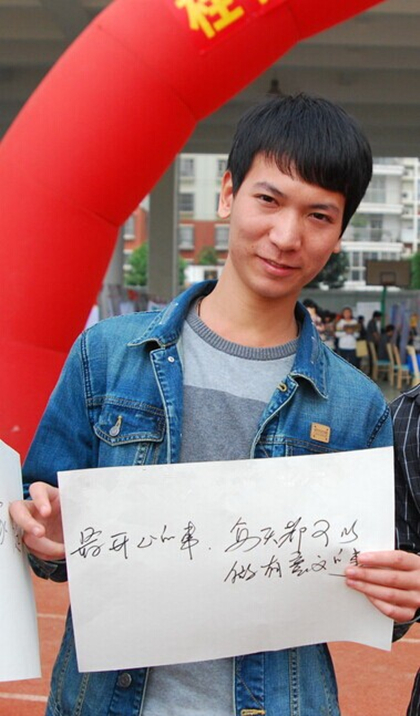 程
最开心的事，每天都可以
做有意义的事